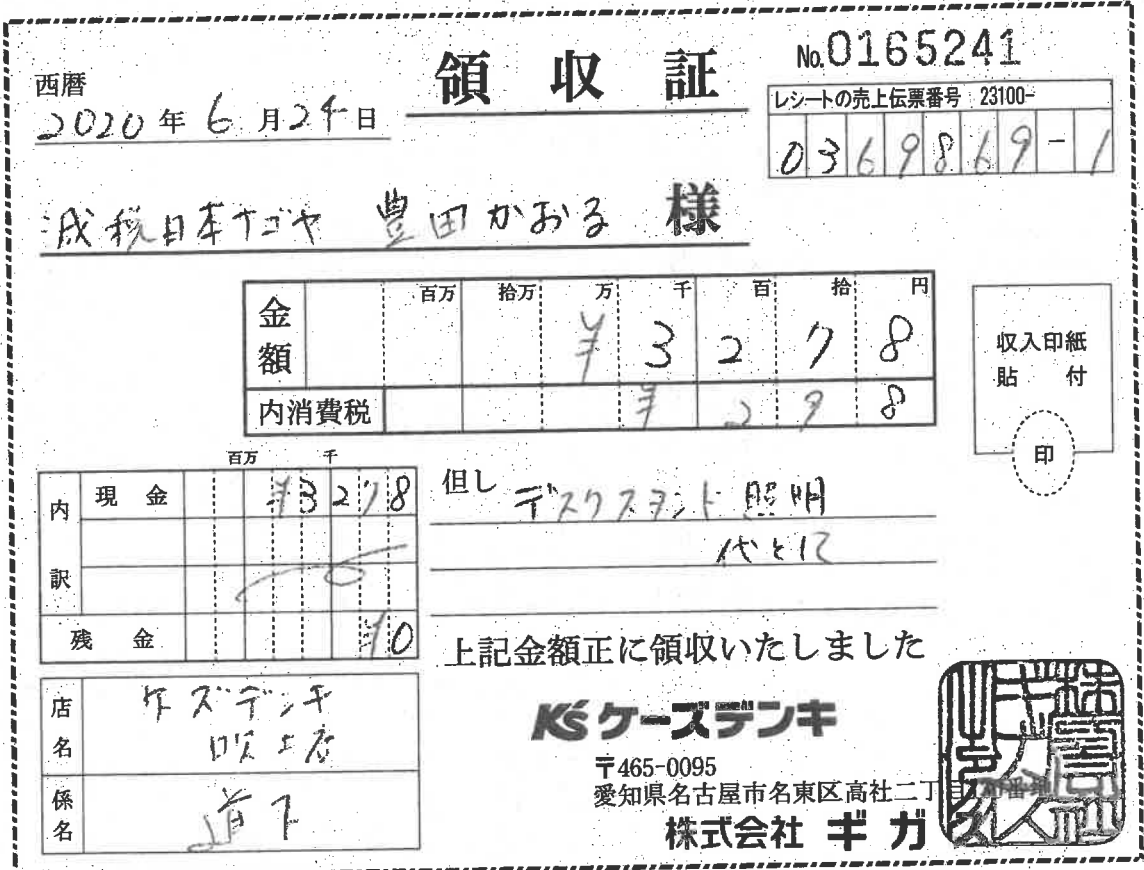 領収証
No.0165241
西暦
2020年6月24日
レシートの売上伝票番号 23100-
0369869-1
減税日本ナゴヤ 豊田かおる 様
百万 拾万 万 千 百 拾 円
金額 ¥3278
内消費税 ¥298
収入印紙
貼付
印
百万 千
内訳
現金 ¥3278
残金 ¥0
但し デスクスタンド照明
代として
上記金額正に領収いたしました
店名 ケーズデンキ
吹上店
係名 道下
K'sケーズデンキ
〒465-0095
愛知県名古屋市名東区高社二丁目
株式会社 ギガス